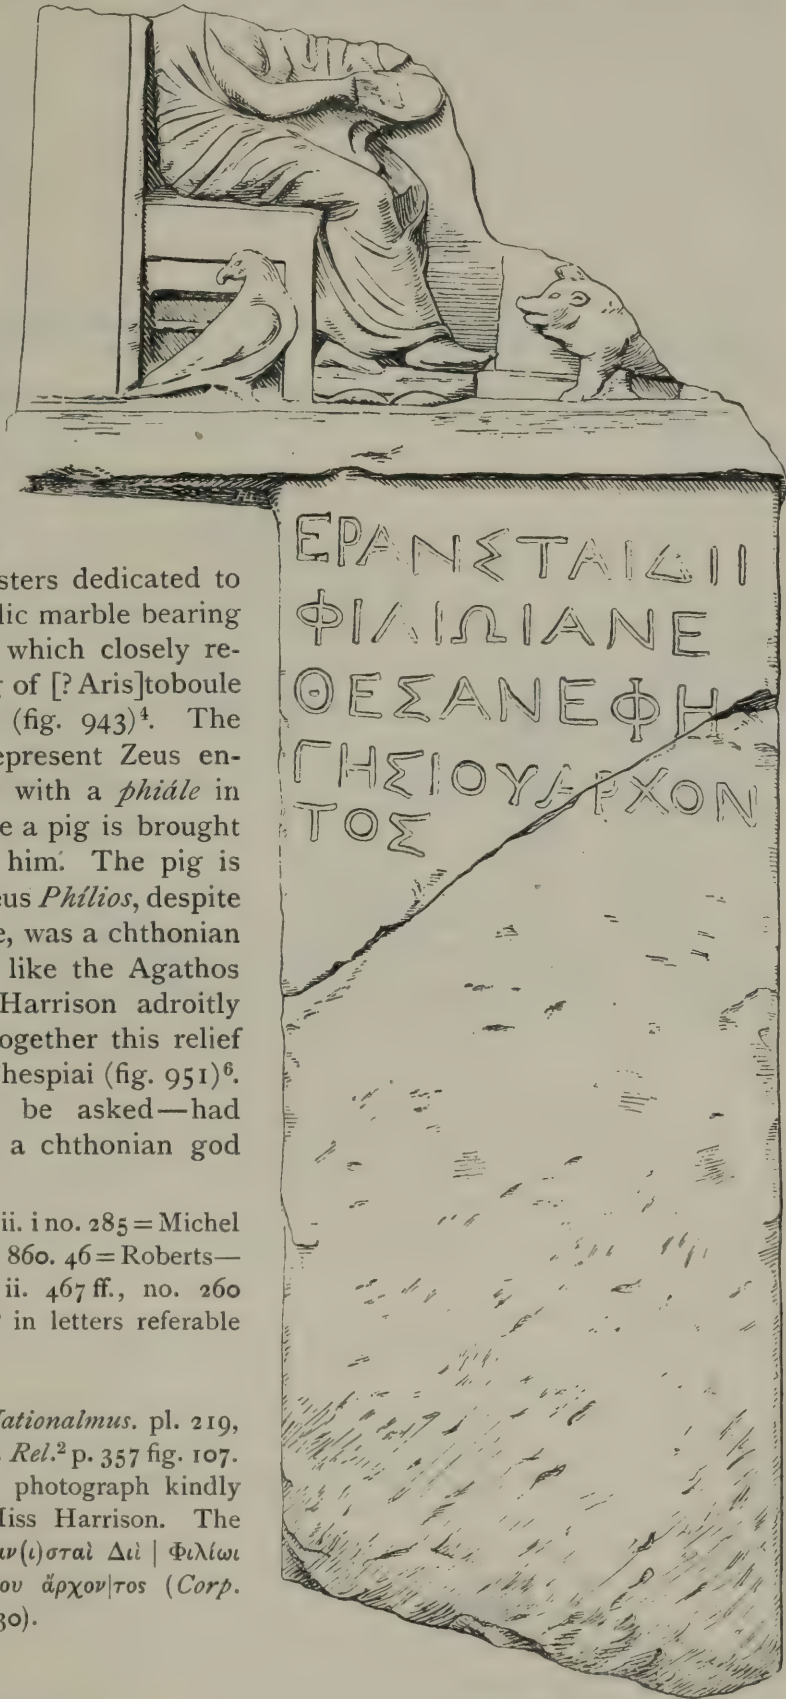 ΕΡΑΝΣΤΑΙΔΙΙ
ΦΙΛΙΩΙΑΝΕ
ΘΕΣΑΝΕΦΗ
ΓΗΣΙΟΥΑΡΧΟΝ
ΤΟΣ
sters dedicated to
lic marble bearing
which closely re-
of [? Aris]toboule
(fig. 943)⁴. The
epresent Zeus en-
with a phiále in
e a pig is brought
him. The pig is
eus Phílios, despite
e, was a chthonian
like the Agathos
Harrison adroitly
ogether this relief
hespiai (fig. 951)⁶.
be asked—had
a chthonian god
ii. i no. 285 = Michel
860. 46 = Roberts—
ii. 467 ff., no. 260
in letters referable
Nationalmus. pl. 219,
Rel.² p. 357 fig. 107.
photograph kindly
Miss Harrison. The
αν(ι)σταὶ Διὶ | Φιλίωι
ου ἄρχον|τος (Corp.
30).